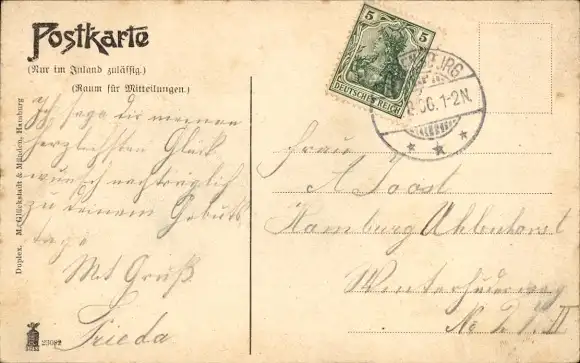 Postkarte
(Nur im Inland zulässig.)
(Raum für Mitteilungen.)
Ich sage dir meinen
herzlichsten Glück
wunsch nachträglich
zu deinem Geburts
tage
Mit Gruß
Frieda
Duplex. M. Glückstadt & Münden, Hamburg
23682
5 5
DEUTSCHES REICH
1-2N.
Frau
A Joost
Hamburg Uhlenhorst
Winterhuderweg
No 21 II